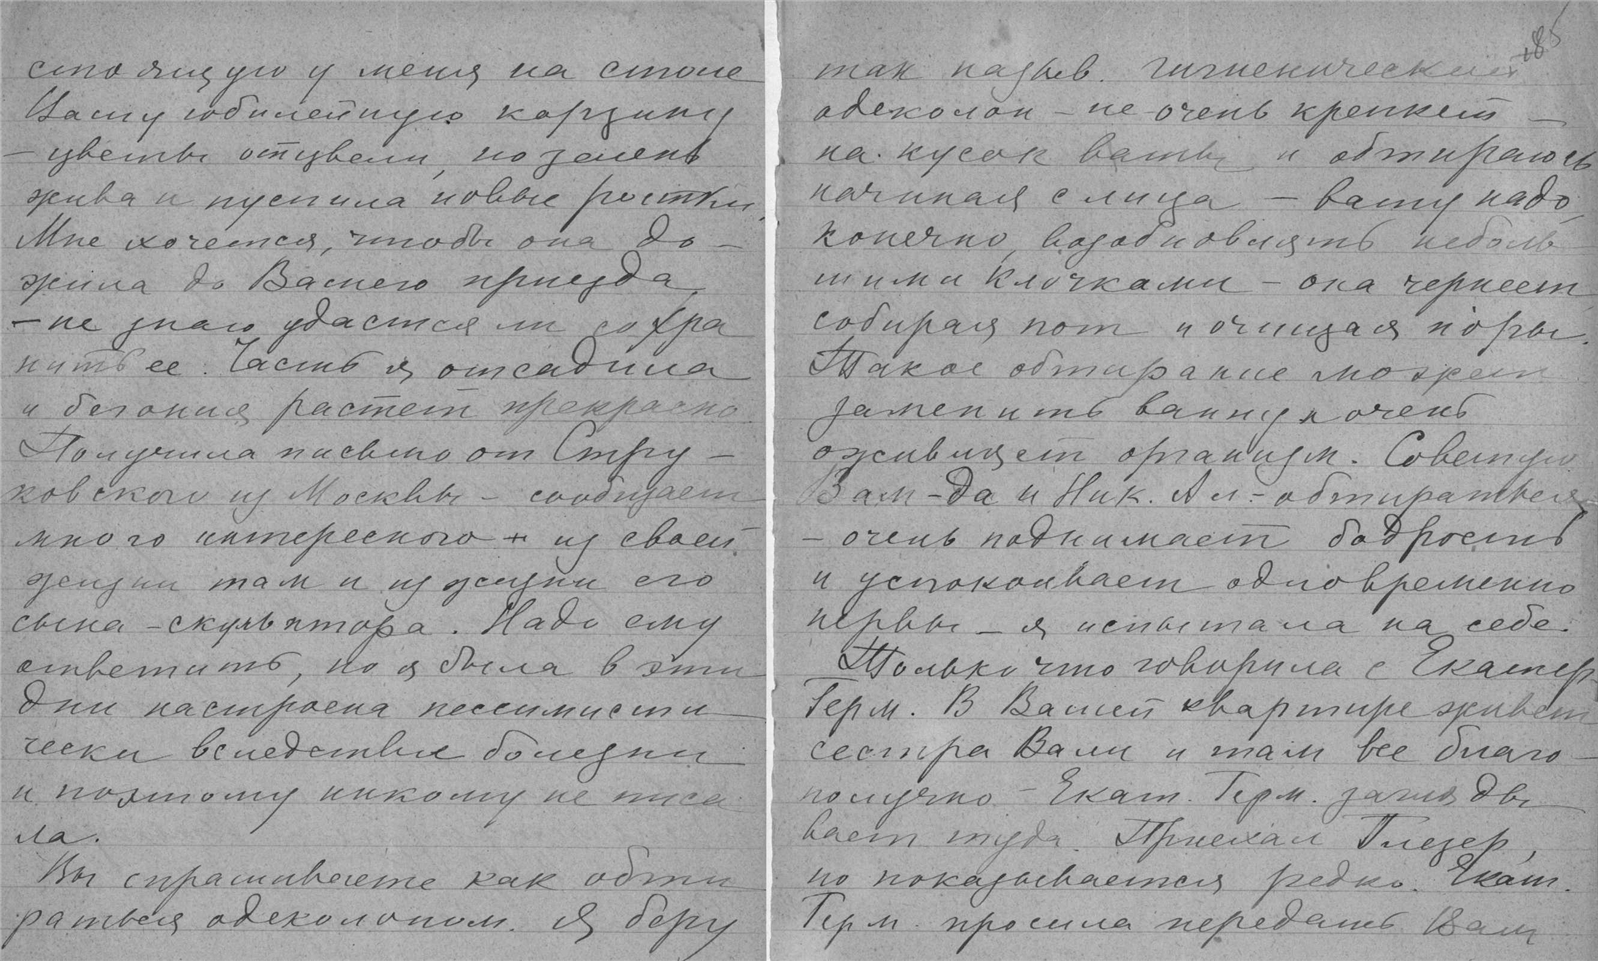 стоящую у меня на столе
Вашу юбилейную корзину
– цветы отцвели, но зелень
жива и пустила новые ростки.
Мне хочется, чтобы она до–
жила до Вашего приезда
– не знаю удастся ли сохра
нить ее. Часть я отсадила
и бегония растет прекрасно
Получила письмо от Стру–
ковского из Москвы – сообщает
много интересного – из своей
жизни там и из жизни его
сына – скульптора. Надо ему
ответить, но я была в эти
дни настроена пессимисти
чески вследствие болезни
и поэтому никому не писа
ла.
Вы спрашиваете как обти
раться одеколоном. Я беру
185
так назыв. гигиенический
одеколон – не очень крепкий –
на кусок ваты и обтираюсь
начиная с лица – вату надо,
конечно, возобновлять неболь
шими клочками – она чернеет
собирая пот и очищая поры.
Такое обтирание может
заменить ванну и очень
оживляет организм. Советую
Вам – да и Ник. Ал. – обтираться
– очень поднимает бодрость
и успокаивает одновременно
нервы – я испытала на себе.
Только что говорила с Екатер.
Герм. В Вашей квартире живет
сестра Вали и там все благо–
получно – Екат. Герм. загляды
вает туда. Приехал Глезер,
но показывается редко. Екат.
Герм. просила передать Вам